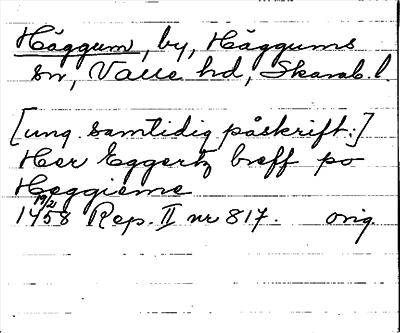 Häggum, by, Häggums
sn, Valle hd, Skarab. l.
[ung. samtidig påskrift:]
Her Eggertz breff po
Heggieme
19/2
1458 Rep. II nr 817. orig.